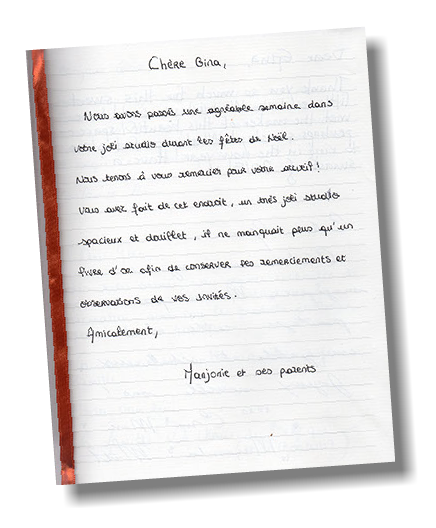 Chère Gina,
Nous avons passés une agréable semaine dans
votre joli studio durant les fêtes de Noël.
Nous tenons à vous remercier pour votre accueil !
Vous avez fait de cet endroit, un très joli studio
spacieux et douillet, il ne manquait plus qu'un
livre d'or afin de conserver les remerciements et
observations de vos invités.
Amicalement,
Marjorie et ses parents